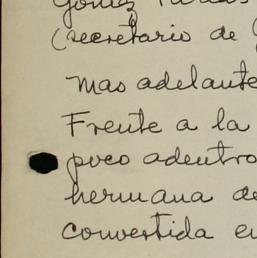 Gómez
(secretario de
mas adelante
Frente a la
poco adentro
hermana de
convertida en